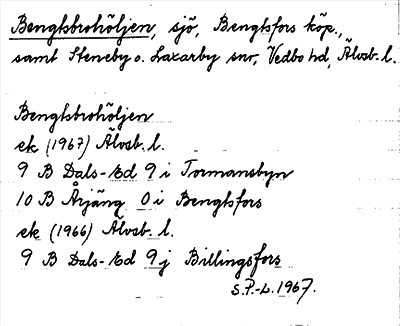 Bengtsbrohöljen, sjö, Bengtsfors köp.,
samt Steneby o. Laxarby snr, Vedbo hd, Älvsb. l.
Bengtsbrohöljen
ek (1967) Älvsb. l.
9 B Dals-Ed 9 i Tormansbyn
10 B Årjäng 0 i Bengtsfors
ek (1966) Älvsb. l.
9 B Dals-Ed 9 j Billingsfors
S.P.-L. 1967.